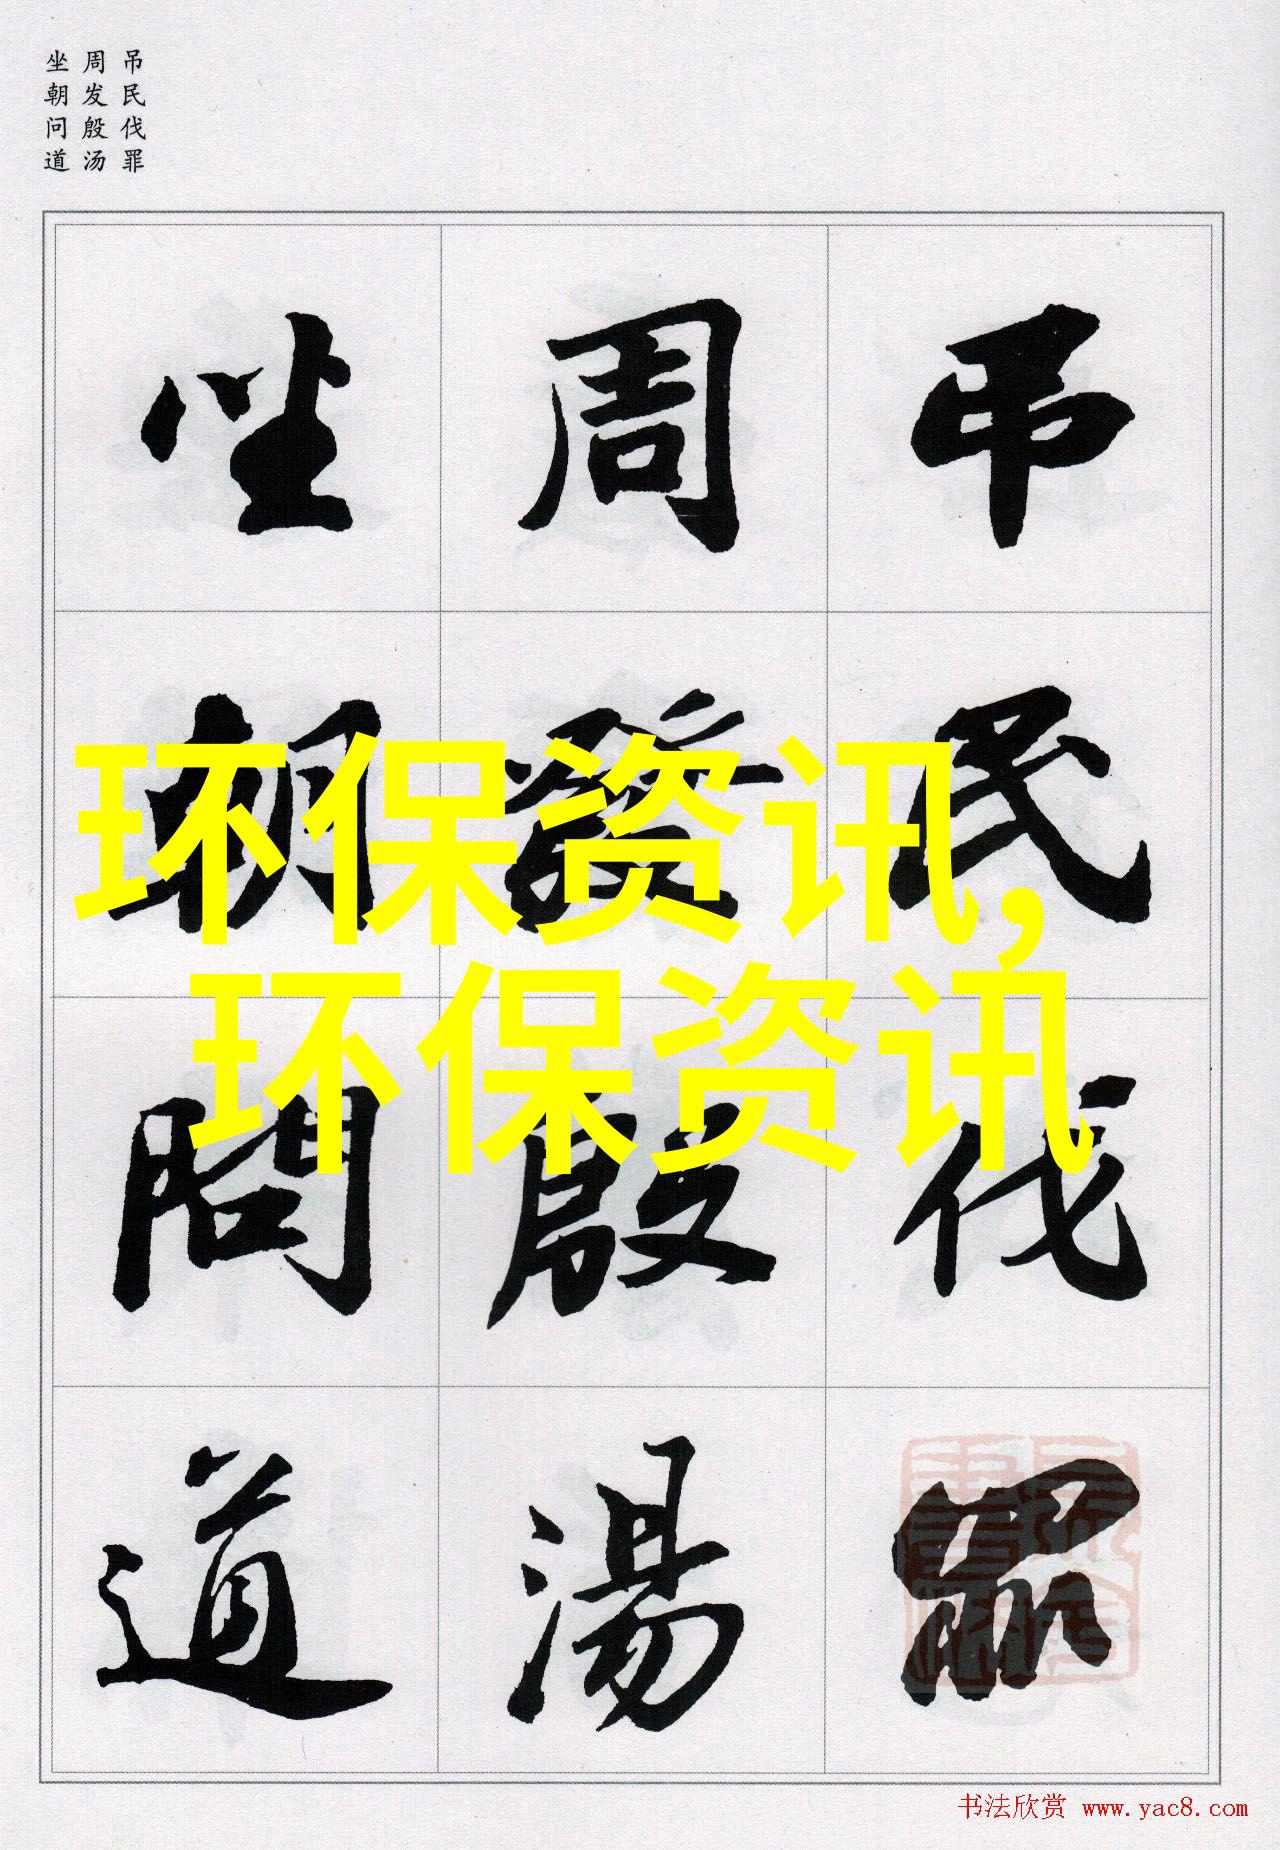 吊民伐罪
周发殷汤
坐朝问道
吊民伐罪
周發殷湯
坐朝問道
环保资讯,
环保资讯
书法欣赏 www.yac8.com